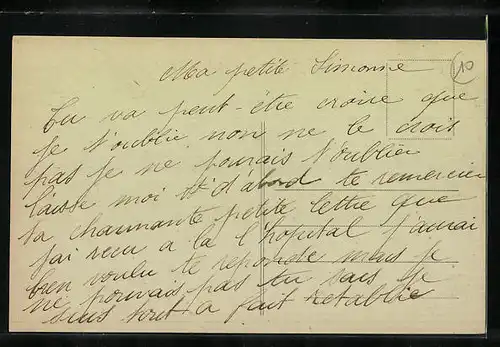 10
Ma petite Simonne
Tu va peut-être croire que
je t'oublie non ne le crois
pas je ne pourais t'oublier
laisse moi tt d'abord te remercier
ta charmante petite lettre que
j'ai recu a la l'hopital j'aurai
bien voulu te reponde mais je
ne pouvais pas tu sais je
suis tout a fait retablie